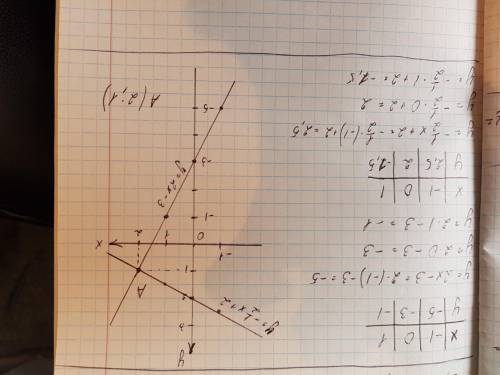 x | -1 | 0 | 1
y | -5 | -3 | -1
y=2x-3=2·(-1)-3=-5
y=2·0-3=-3
y=2·1-3=-1
x | -1 | 0 | 1
y | 2,5 | 2 | -1,5
y=-1/2x+2=-1/2·(-1)+2=2,5
y=-1/2·0+2=2
y=-1/2·1+2=-1,5
y
y=-1/2x+2
3
2
A
1
-1
0
1
2
x
-1
y=2x-3
-3
-5
A(2;1)